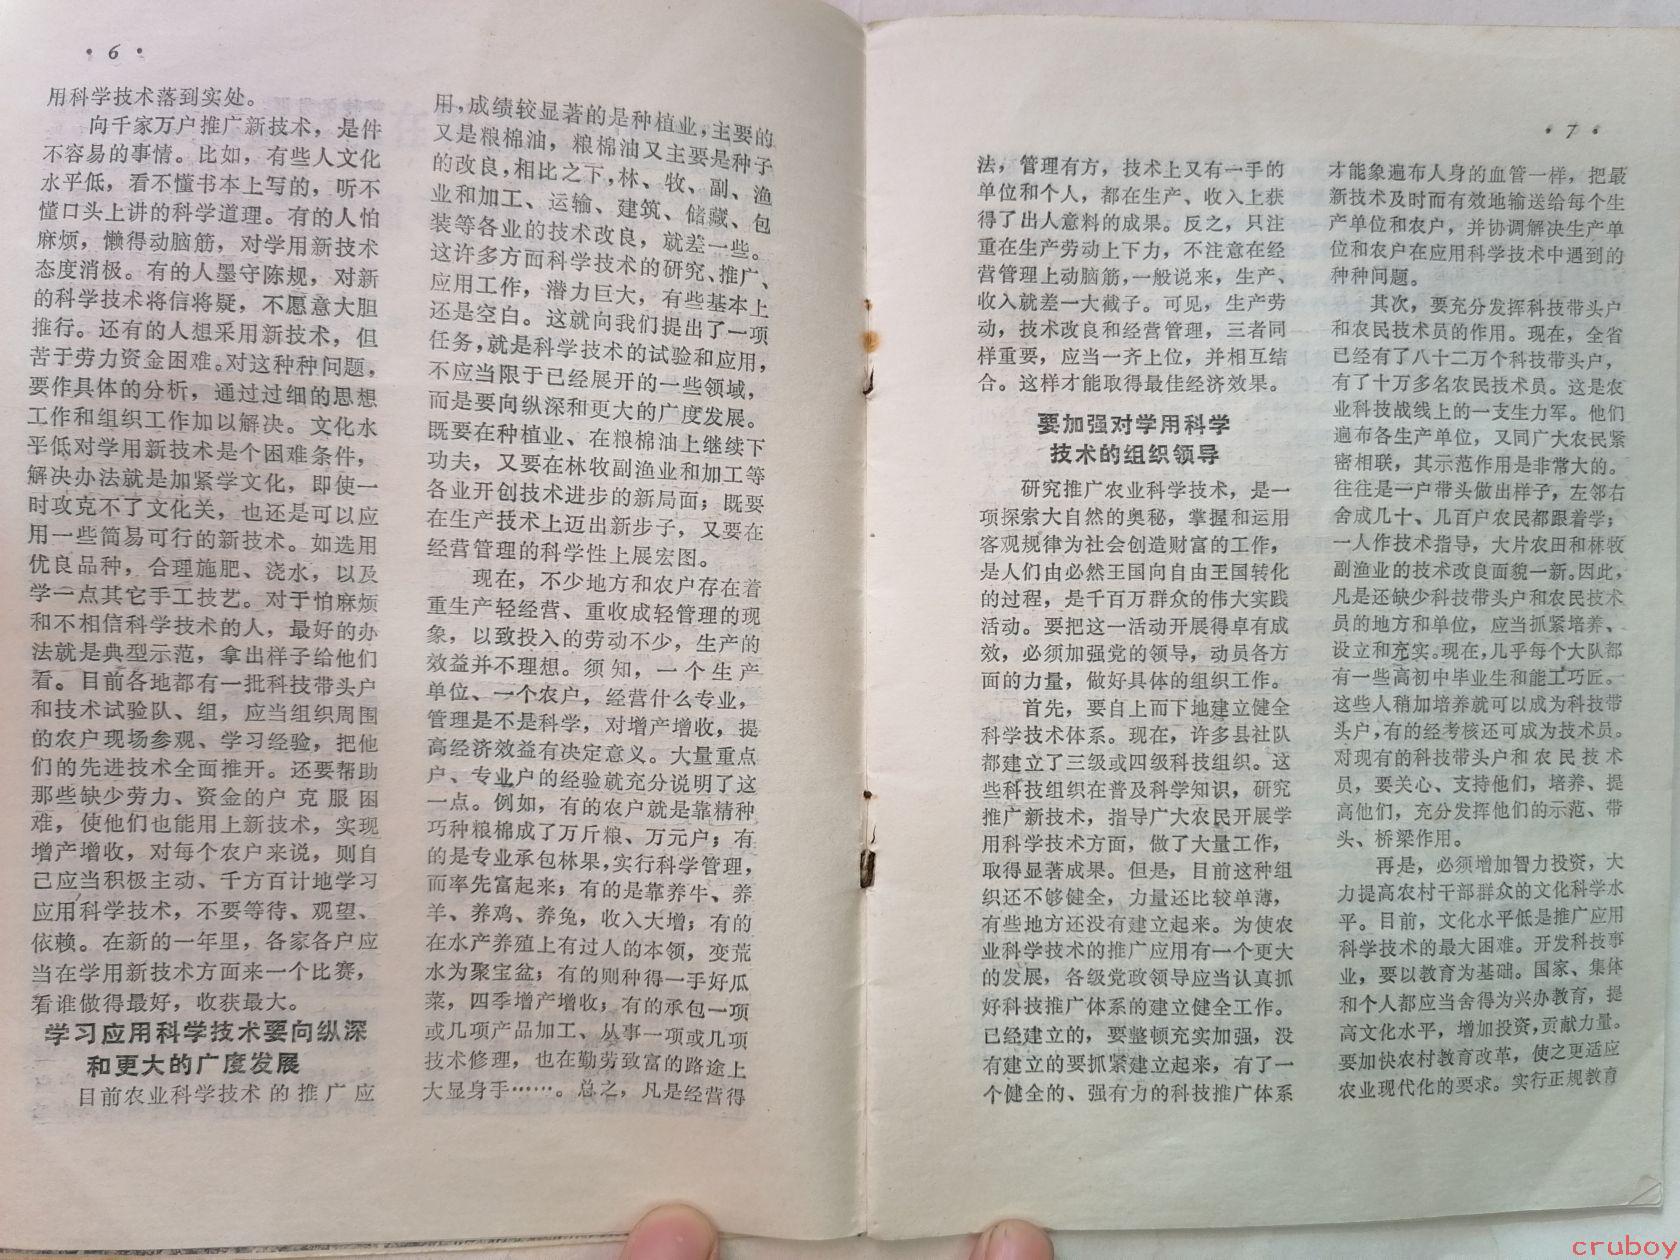 · 6 ·
用科学技术落到实处。
向千家万户推广新技术，是件
不容易的事情。比如，有些人文化
水平低，看不懂书本上写的，听不
懂口头上讲的科学道理。有的人怕
麻烦，懒得动脑筋，对学用新技术
态度消极。有的人墨守陈规，对新
的科学技术将信将疑，不愿意大胆
推行。还有的人想采用新技术，但
苦于劳力资金困难。对这种种问题，
要作具体的分析，通过过细的思想
工作和组织工作加以解决。文化水
平低对学用新技术是个困难条件，
解决办法就是加紧学文化，即使一
时攻克不了文化关，也还是可以应
用一些简易可行的新技术。如选用
优良品种，合理施肥、浇水，以及
学一点其它手工技艺。对于怕麻烦
和不相信科学技术的人，最好的办
法就是典型示范，拿出样子给他们
看。目前各地都有一批科技带头户
和技术试验队、组，应当组织周围
的农户现场参观、学习经验，把他
们的先进技术全面推开。还要帮助
那些缺少劳力、资金的户克服困
难，使他们也能用上新技术，实现
增产增收，对每个农户来说，则自
己应当积极主动、千方百计地学习
应用科学技术，不要等待、观望、
依赖。在新的一年里，各家各户应
当在学用新技术方面来一个比赛，
看谁做得最好，收获最大。
学习应用科学技术要向纵深
和更大的广度发展
目前农业科学技术的推广应
用，成绩较显著的是种植业，主要的
又是粮棉油，粮棉油又主要是种子
的改良，相比之下，林、牧、副、渔
业和加工、运输、建筑、储藏、包
装等各业的技术改良，就差一些。
这许多方面科学技术的研究、推广、
应用工作，潜力巨大，有些基本上
还是空白。这就向我们提出了一项
任务，就是科学技术的试验和应用，
不应当限于已经展开的一些领域，
而是要向纵深和更大的广度发展。
既要在种植业、在粮棉油上继续下
功夫，又要在林牧副渔业和加工等
各业开创技术进步的新局面；既要
在生产技术上迈出新步子，又要在
经营管理的科学性上展宏图。
现在，不少地方和农户存在着
重生产轻经营、重收成轻管理的现
象，以致投入的劳动不少，生产的
效益并不理想。须知，一个生产
单位、一个农户，经营什么专业，
管理是不是科学，对增产增收，提
高经济效益有决定意义。大量重点
户、专业户的经验就充分说明了这
一点。例如，有的农户就是靠精种
巧种粮棉成了万斤粮、万元户；有
的是专业承包林果，实行科学管理，
而率先富起来；有的是靠养牛、养
羊、养鸡、养兔，收入大增；有的
在水产养殖上有过人的本领，变荒
水为聚宝盆；有的则种得一手好瓜
菜，四季增产增收；有的承包一项
或几项产品加工、从事一项或几项
技术修理，也在勤劳致富的路途上
大显身手……。总之，凡是经营得
· 7 ·
法，管理有方，技术上又有一手的
单位和个人，都在生产、收入上获
得了出人意料的成果。反之，只注
重在生产劳动上下力，不注意在经
营管理上动脑筋，一般说来，生产、
收入就差一大截子。可见，生产劳
动，技术改良和经营管理，三者同
样重要，应当一齐上位，并相互结
合。这样才能取得最佳经济效果。
要加强对学用科学
技术的组织领导
研究推广农业科学技术，是一
项探索大自然的奥秘，掌握和运用
客观规律为社会创造财富的工作，
是人们由必然王国向自由王国转化
的过程，是千百万群众的伟大实践
活动。要把这一活动开展得卓有成
效，必须加强党的领导，动员各方
面的力量，做好具体的组织工作。
首先，要自上而下地建立健全
科学技术体系。现在，许多县社队
都建立了三级或四级科技组织。这
些科技组织在普及科学知识，研究
推广新技术，指导广大农民开展学
用科学技术方面，做了大量工作，
取得显著成果。但是，目前这种组
织还不够健全，力量还比较单薄，
有些地方还没有建立起来。为使农
业科学技术的推广应用有一个更大
的发展，各级党政领导应当认真抓
好科技推广体系的建立健全工作。
已经建立的，要整顿充实加强，没
有建立的要抓紧建立起来，有了一
个健全的、强有力的科技推广体系
才能象遍布人身的血管一样，把最
新技术及时而有效地输送给每个生
产单位和农户，并协调解决生产单
位和农户在应用科学技术中遇到的
种种问题。
其次，要充分发挥科技带头户
和农民技术员的作用。现在，全省
已经有了八十二万个科技带头户，
有了十万多名农民技术员。这是农
业科技战线上的一支生力军。他们
遍布各生产单位，又同广大农民紧
密相联，其示范作用是非常大的。
往往是一户带头做出样子，左邻右
舍成几十、几百户农民都跟着学；
一人作技术指导，大片农田和林牧
副渔业的技术改良面貌一新。因此，
凡是还缺少科技带头户和农民技术
员的地方和单位，应当抓紧培养、
设立和充实。现在，几乎每个大队都
有一些高初中毕业生和能工巧匠。
这些人稍加培养就可以成为科技带
头户，有的经考核还可成为技术员。
对现有的科技带头户和农民技术
员，要关心、支持他们，培养、提
高他们，充分发挥他们的示范、带
头、桥梁作用。
再是，必须增加智力投资，大
力提高农村干部群众的文化科学水
平。目前，文化水平低是推广应用
科学技术的最大困难。开发科技事
业，要以教育为基础。国家、集体
和个人都应当舍得为兴办教育，提
高文化水平，增加投资，贡献力量。
要加快农村教育改革，使之更适应
农业现代化的要求。实行正规教育
cruboy